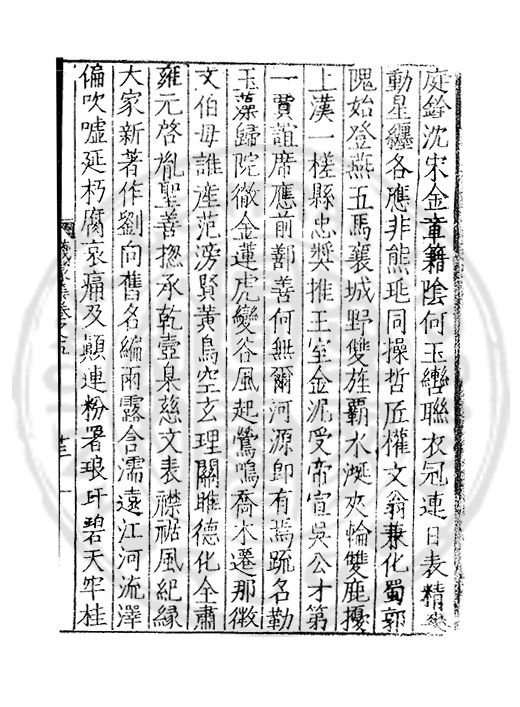 庭鎗沈宋金章籍陰何玉巒聯衣冠連日表精爽
動星纏各應非熊珽同操哲匠權文翁兼化蜀郭
隗始登燕五馬襄城野雙旌霸水湚夾輪雙鹿擾
上漢一槎縣忠奬推王室金泥受帝宣吳公才第
一賈誼席應前鄯善何無爾河源卽有焉疏名勒
玉藻歸院徹金蓮虎變谷風起鶯鳴喬木遷那徴
文伯母誰産范滂賢黃鳥空玄理關雎德化全肅
雍元啓胤聖善揔承乾壼臬慈文表襟祜風紀緣
大家新著作劉向舊名編雨露含濡遠江河流澤
偏吹噓延朽腐哀痛及顚連粉署琅玕碧天牢桂
卷之五